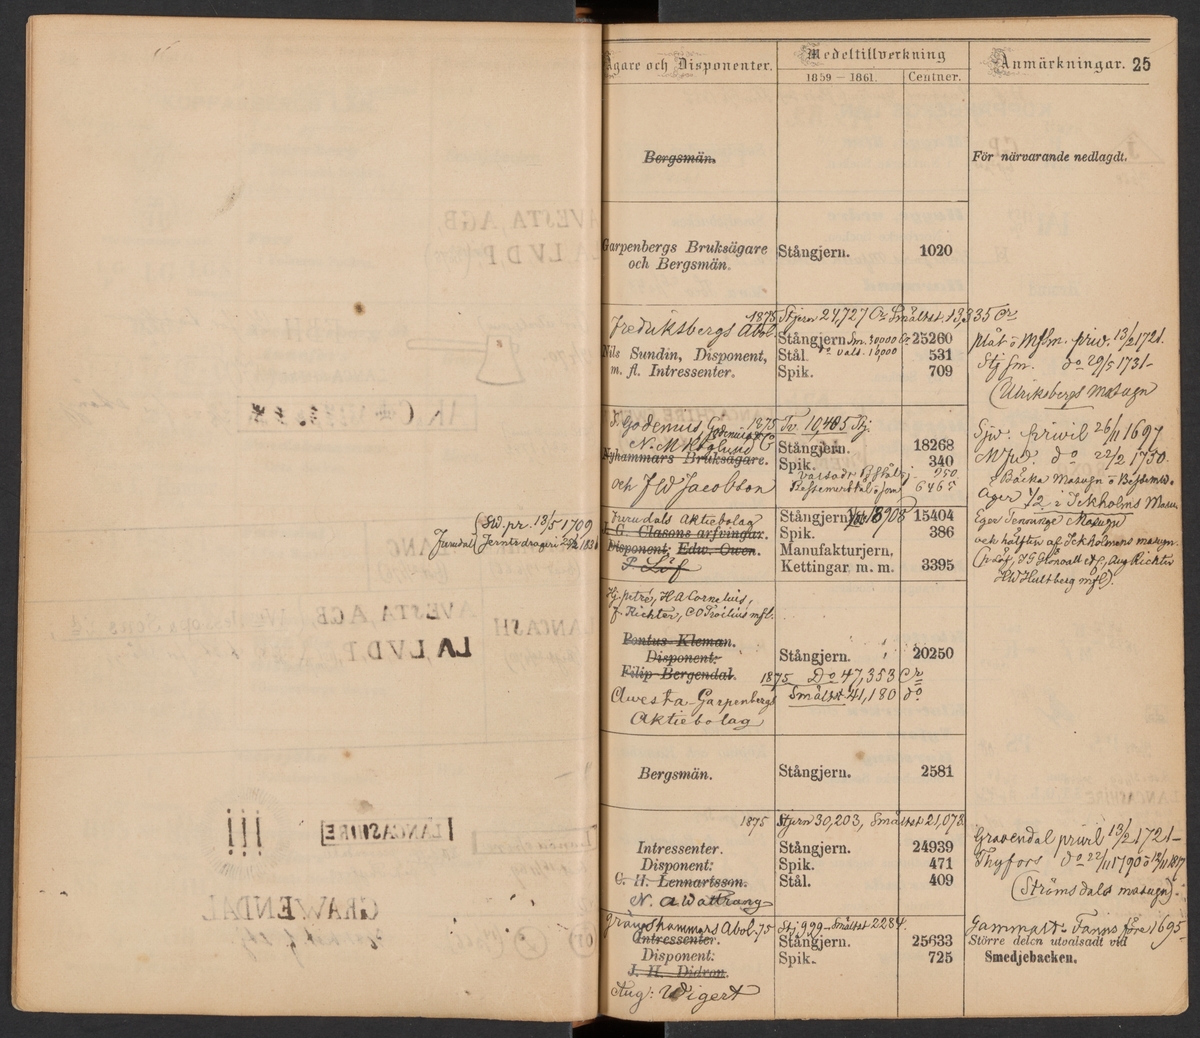 Ägare och Disponenter.
Medeltillverkning
1859 – 1861.
Centner.
Anmärkningar. 25
Bergsmän.
För närvarande nedlagdt.
Garpenbergs Bruksägare
och Bergsmän.
Stångjern. 1020
1875 Stjern 27,727 Cr Smältst. 13,335 Cr
Fredriksbergs Abol.
Nils Sundin, Disponent,
m. fl. Intressenter.
Stångjern Sm. 30000 Cr 25260
Stål. do vals. 10000 531
Spik. 709
plåt o Mfsm. priv. 13/2 1721.
Stjsm. do 29/5 1731–
(Ulriksbergs Masugn
1875 Tv 10,485 Stj.
Nyhammars Bruksägare.
och J W Jacobson
Stångjern. 18268
Spik. 340
250
6465
Sjw. privil 26/11 1697
do 22/2 1750.
Bäcka Masugn o Bessemerv.
Äger 1/2 i Ickholms Masu.
(Sw. pr. 13/5 1709
Jurudal
Jurudals Aktiebolag
J. G. Clasons arfvingar.
Disponent, Edw. Owen.
P. Löf
Stångjern 15404
Spik. 386
Manufakturjern.
Kettingar m. m. 3395
Eger Tenninge Masugn
och hälften af Ickholmens masugn.
(P Löf, J G Grönvall et C, Aug Richter
H W Hultberg mfl).
Hj. petré, H A Cornelius,
F. Richter, C O Troilius mfl.
Pontus Kleman.
Disponent:
Filip Bergendal.
Stångjern. 20250
1875 Do 47,353 Cr
Smältst 41,180 do
Avesta-Garpenbergs
Aktiebolag
Bergsmän.
Stångjern. 2581
1875 Stjern 30,203, Smältst 21,078
Intressenter.
Disponent:
C. H. Lennartsson.
N. A Wattrang
Stångjern. 24939
Spik. 471
Stål. 409
Gravendal privil 13/2 1721–
Thyfors do 22/11 1790 o 12/11 1817
(Strömsdals masugn).
Grängshammars Abol. 75 Stj 999– Smältst 2284.
Intressenter.
Disponent:
J. H. Didron.
Aug: Wigert
Stångjern. 25633
Spik. 725
Gammalt. Fanns före 1695–
Större delen utvalsadt vid
Smedjebacken.